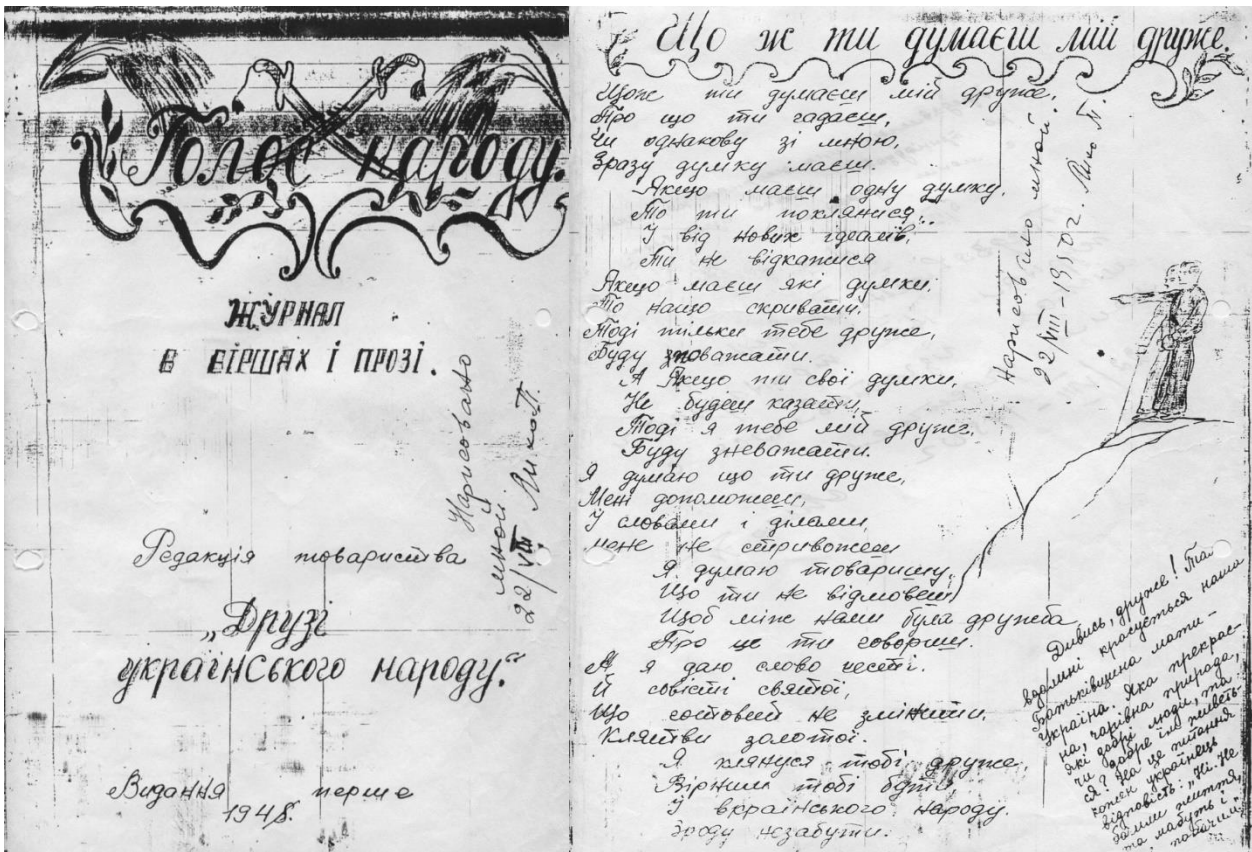 Голос народу.
ЖУРНАЛ
В ВІРШАХ І ПРОЗІ.
Нарисовано
мной
22/VIII
Редакція товариства
„Друзі
українського народу."
Видання перше
1948.
Що ж ти думаєш мій друже.
Щож ти думаєш мій друже,
Про що ти гадаєш,
Чи однакову зі мною,
Зразу думку маєш.
Якщо маєш одну думку,
То ти поклянися,
І від нових ідеалів,
Ти не відкажися
Якщо маєш які думки,
То нащо скривати,
Тоді тільки тебе друже,
Буду зповажати.
А Якщо ти свої думки,
Не будеш казати,
Тоді я тебе мій друже,
Буду зневажати.
Я думаю що ти друже,
Мені допоможеш,
І словами і ділами,
мене не стривожеш
Я думаю товаришу,
Що ти не відмовеш,
Щоб між нами була дружба
Про це ти говориш.
А я даю слово честі.
Й совісті святої,
Що готовий не змінити,
Клятви золотої.
Я клянуся тобі друже,
Вірним тобі бути,
І вкраїнського народу.
Зроду незабути.
Нарисовано мной.
22/VIII-1950г.
Дивись, друже! Там
вдолині красується наша
Батьківщина мати-
Україна. Яка прекрас-
на, чарівна природа,
які добрі люди, та
чи добре їм живеть-
ся? На це питання
кожен українець
відповість: „Ні. Не
бачили життя,
та мабуть і
побачим